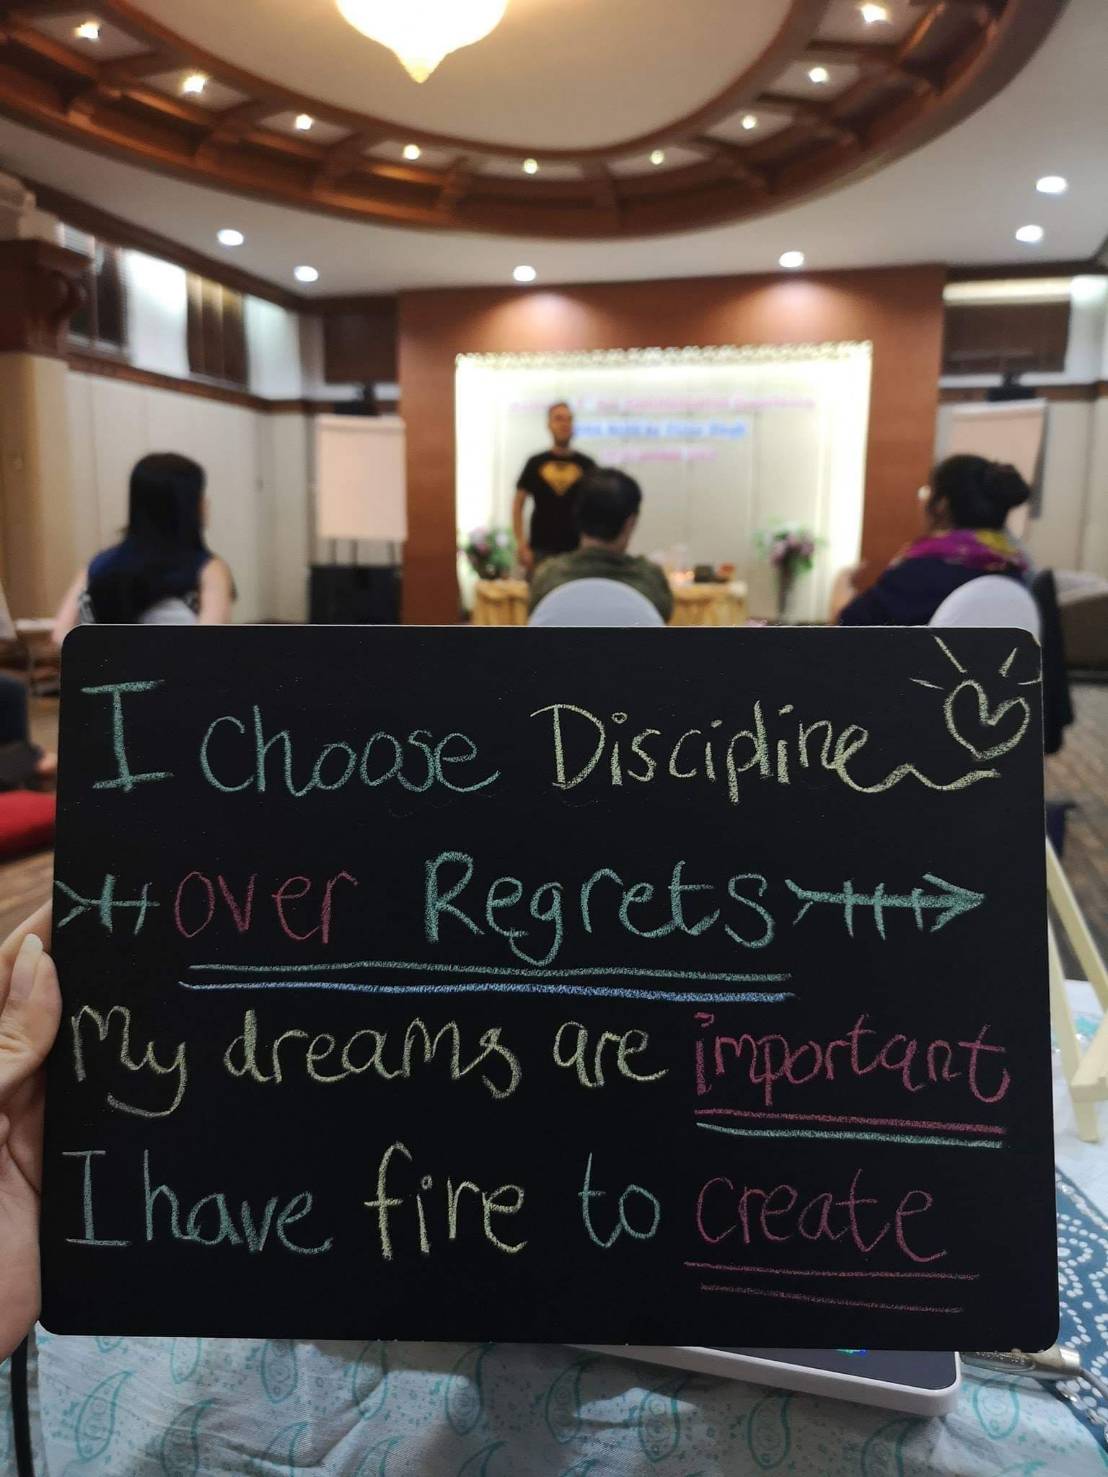 I choose Discipline
over Regrets
My dreams are important
I have fire to create